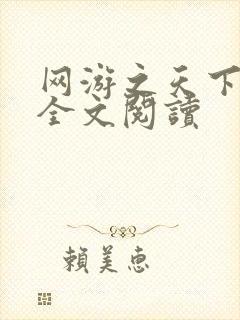 网游之天下
全文閱讀
賴美惠